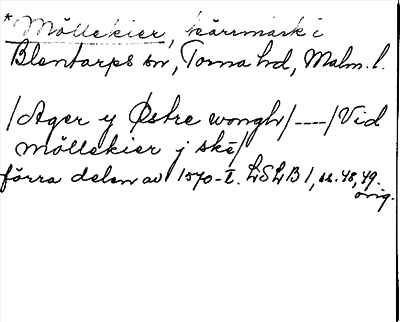 *Möllekier, kärrmark i
Blentarps sn, Torna hd, Malm. l.
/Ager y Østre wongh/---/Vid
möllekier j skē/
förra delen av 1570-t. LSLB 1, s. 48, 49.
orig.